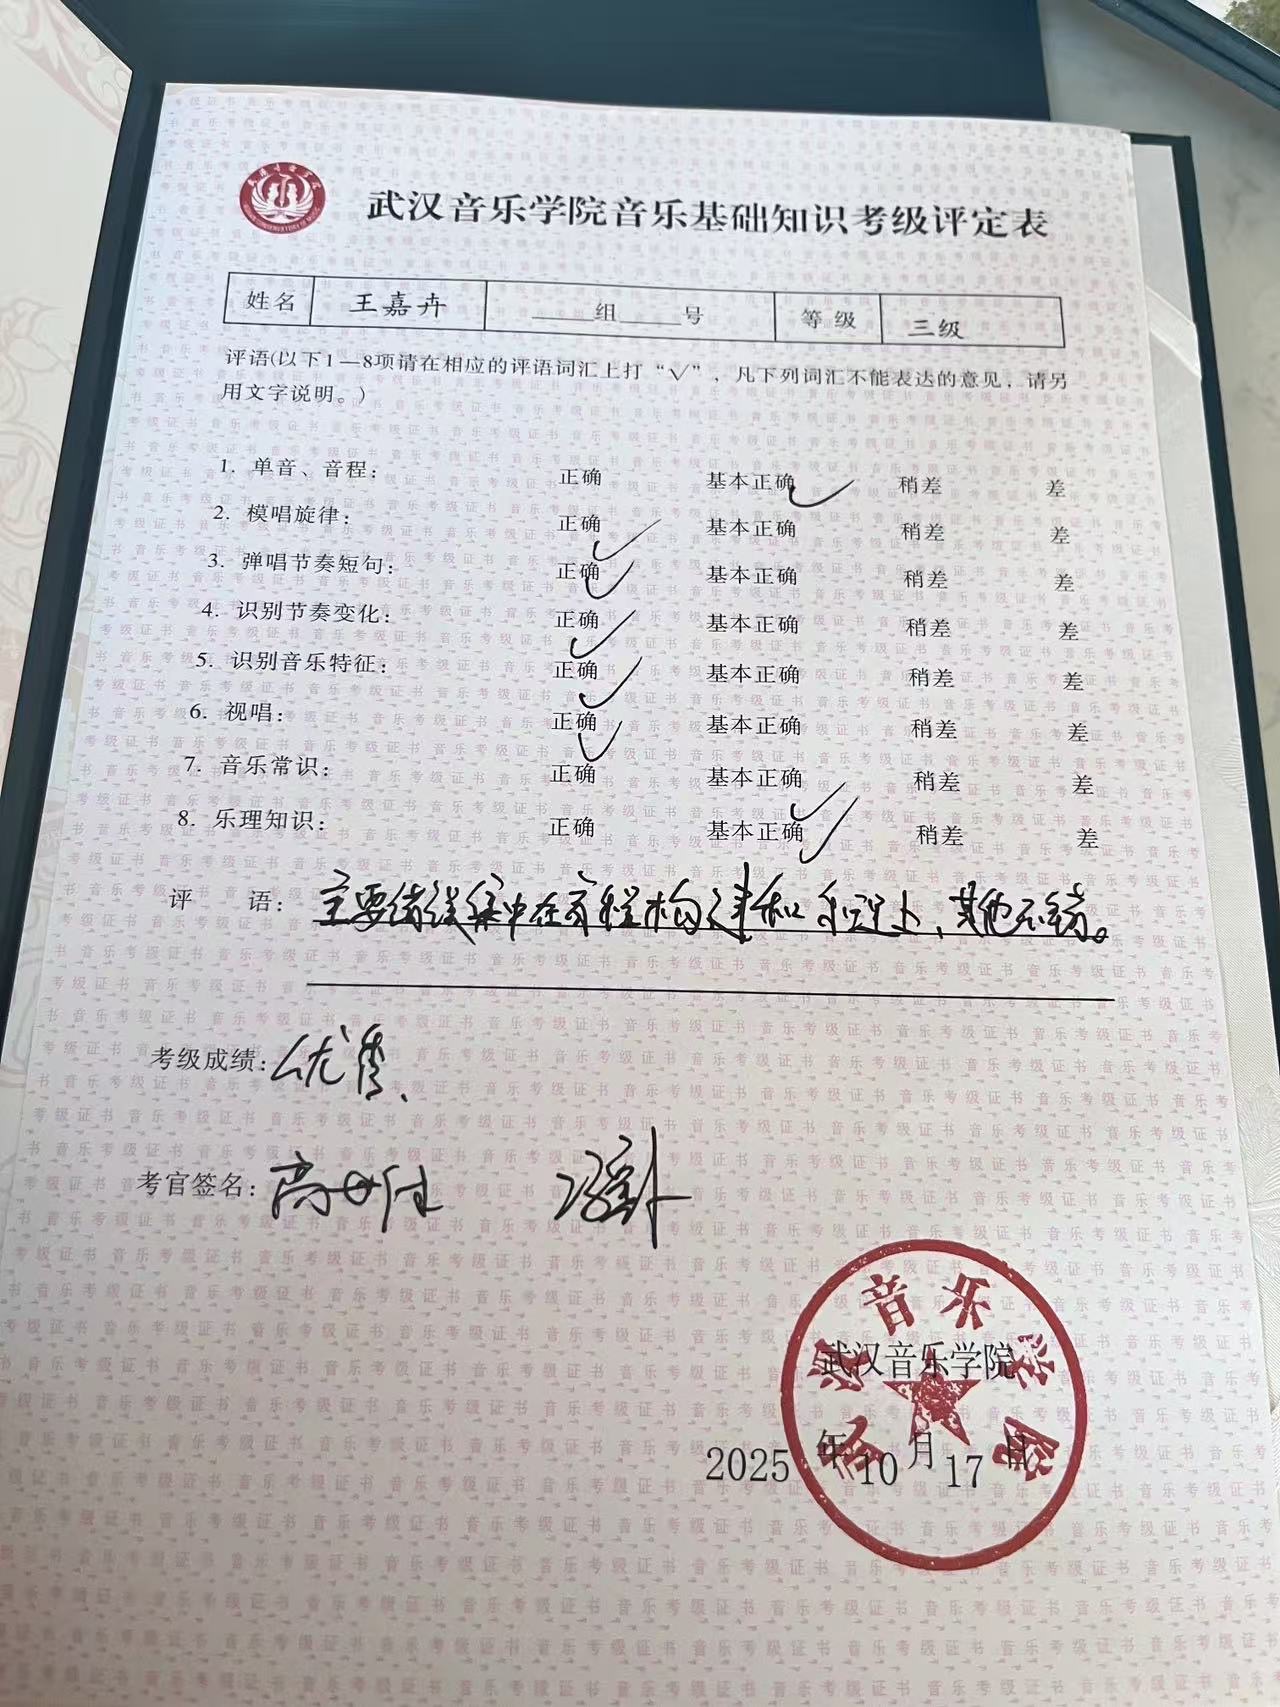 武汉音乐学院音乐基础知识考级评定表
姓名 王嘉卉 ____组____号 等级 三级
评语(以下1—8项请在相应的评语词汇上打“√”，凡下列词汇不能表达的意见，请另
用文字说明。)
1. 单音、音程： 正确 基本正确 ✓ 稍差 差
2. 模唱旋律： 正确 ✓ 基本正确 稍差 差
3. 弹唱节奏短句： 正确 ✓ 基本正确 稍差 差
4. 识别节奏变化： 正确 ✓ 基本正确 稍差 差
5. 识别音乐特征： 正确 ✓ 基本正确 稍差 差
6. 视唱： 正确 ✓ 基本正确 稍差 差
7. 音乐常识： 正确 基本正确 ✓ 稍差 差
8. 乐理知识： 正确 基本正确 ✓ 稍差 差
评 语： 主要错误集中在音程构建和乐理上，其他不错。
考级成绩：优秀
考官签名：
武汉音乐学院
武汉音乐学院
2025年10月17日